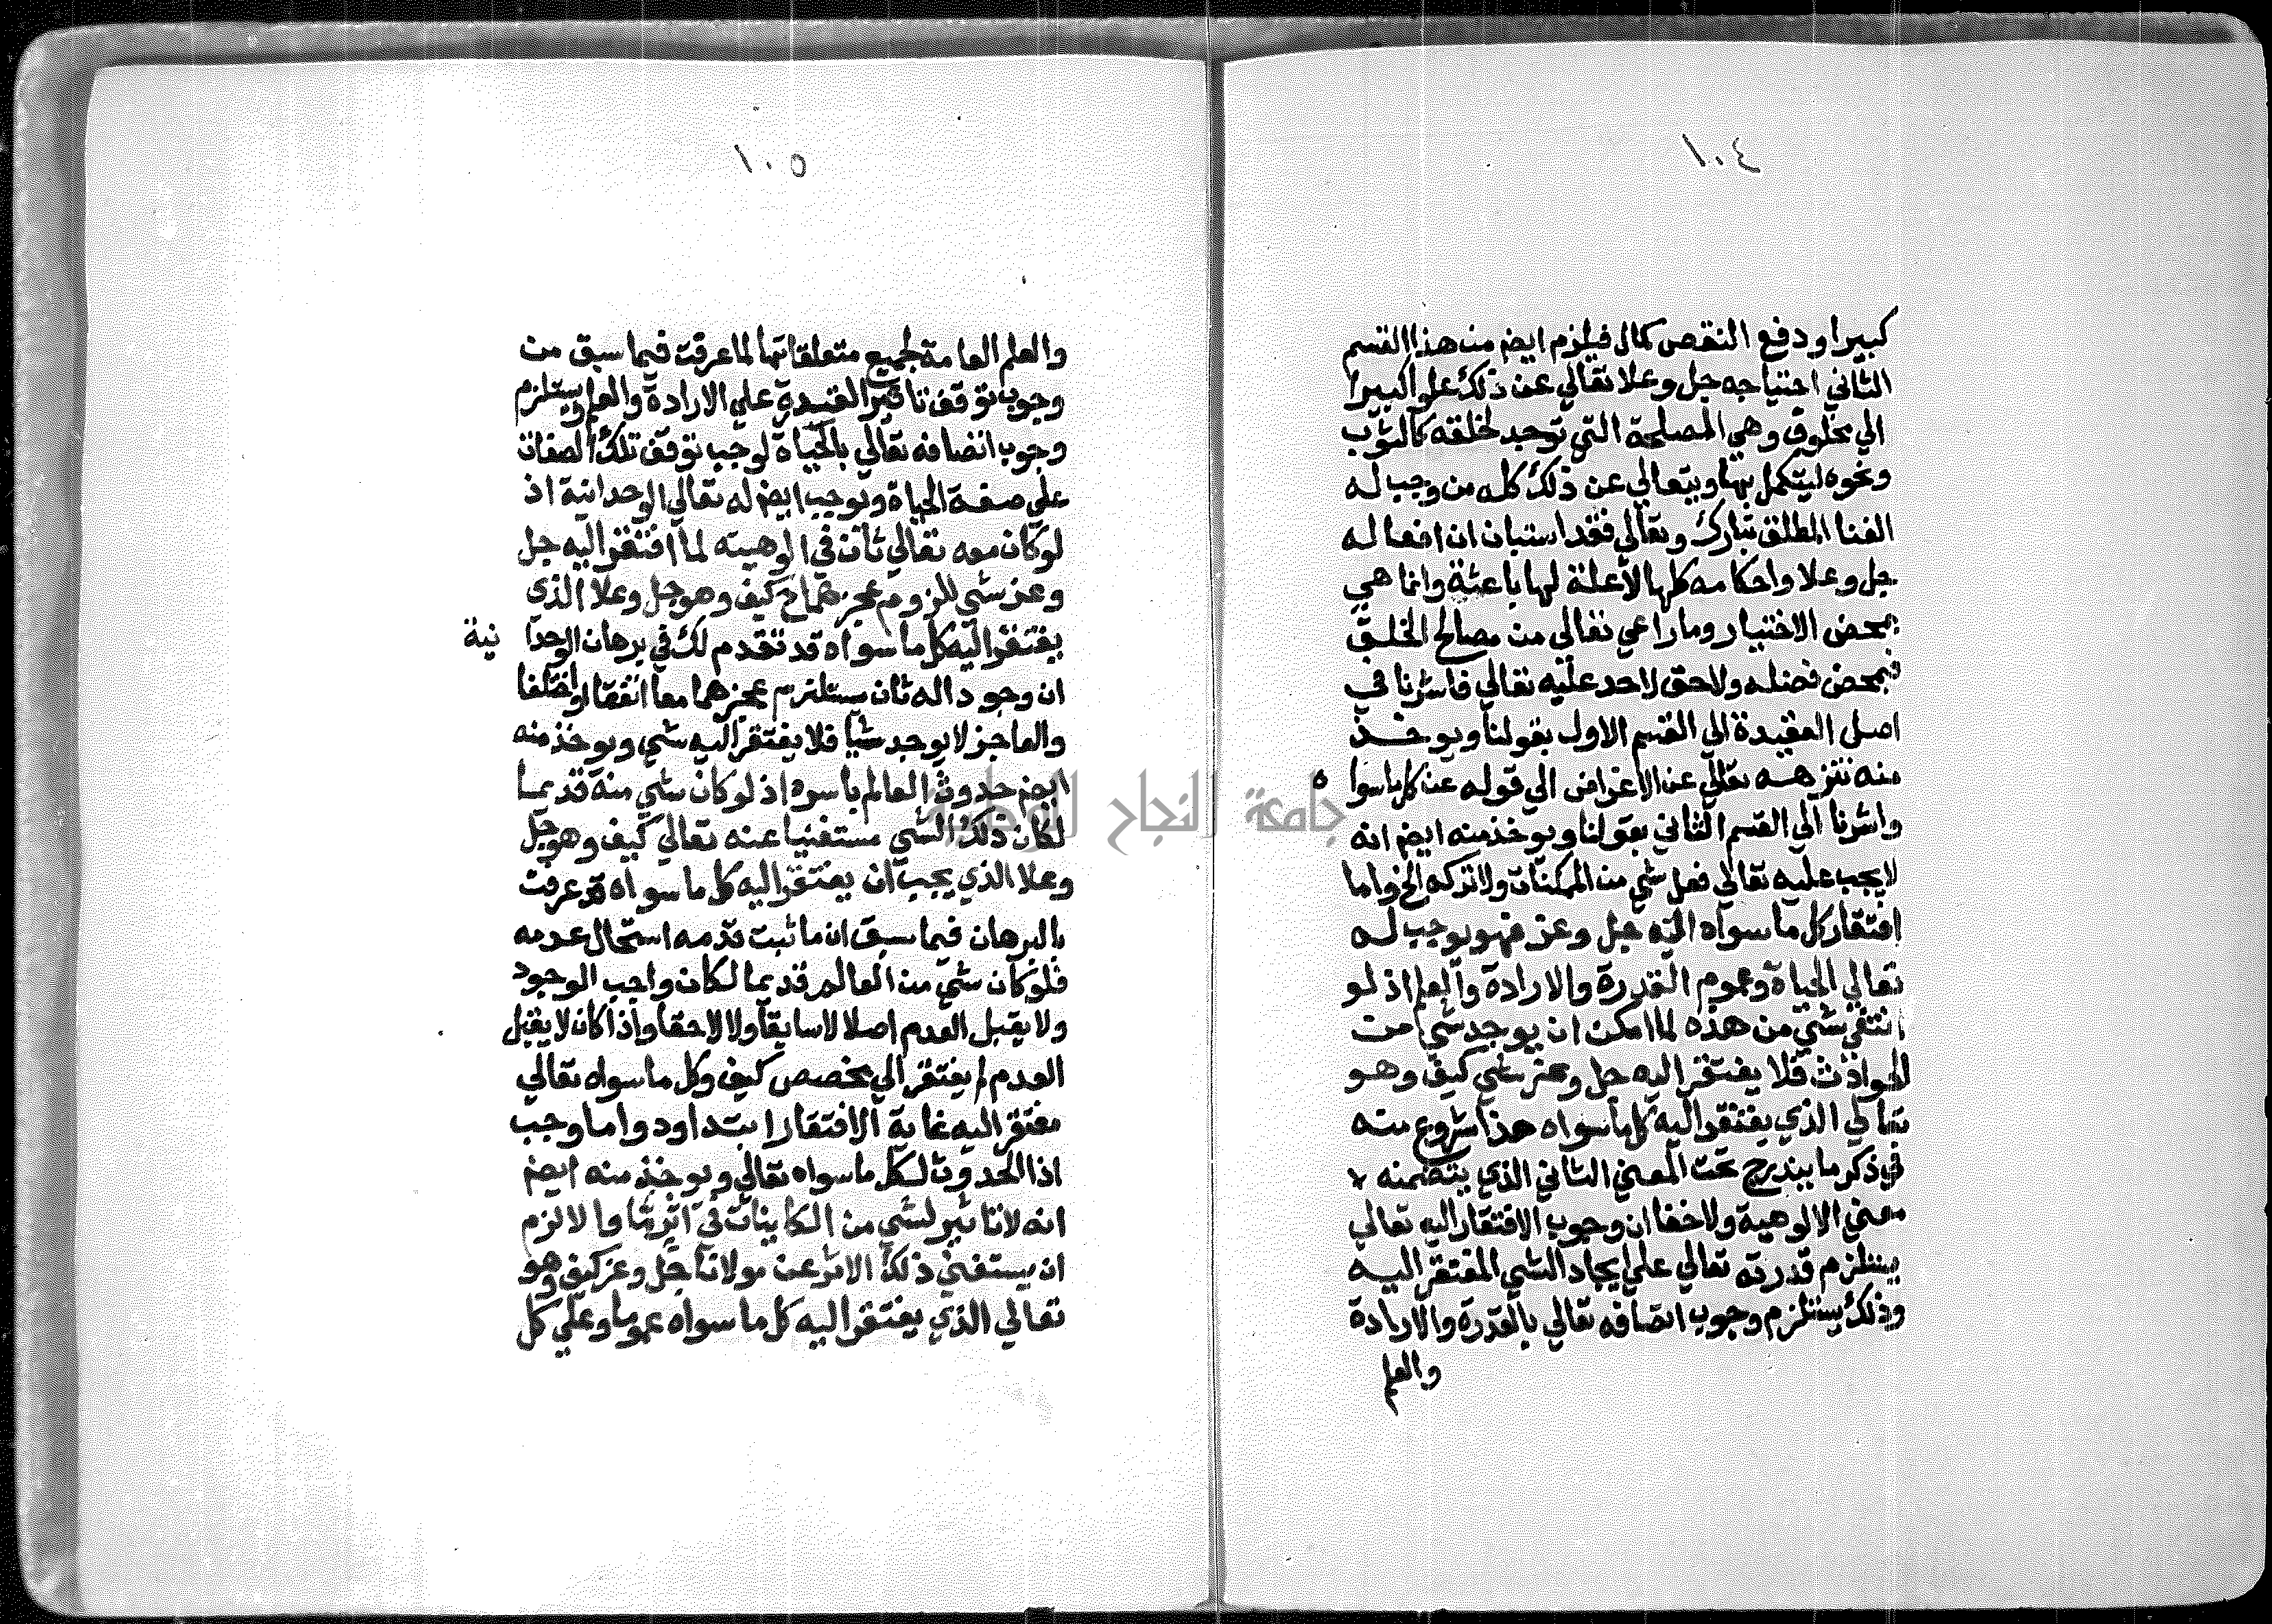 ١٠٤
كبيرا ودفع النقص كمال فيلزم ايضم من هذا القسم
الثاني احتياجه جل وعلا تعالي عن ذلك علوا كبيرا
الي مخلوق وهي المصلحة التي توجد لخلقه كالثوب
ونحوه ليتكمل بها ويتعالي عن ذلك كله من وجب له
الغنا المطلق تبارك وتعالي فقد استبان ان افعاله
جل وعلا واحكامه كلها لا علة لها باعثة وانما هي
بمحض الاختيار وما راعي تعالي من مصالح الخلق
فبمحض فضله ولا حق لاحد عليه تعالي فاشرنا في
اصل العقيدة الي القسم الاول بقولنا ويوخذ
منه تنزهه تعالي عن الاغراض الي قوله عن كل ما سواه
واشرنا الي القسم الثاني بقولنا ويوخذ منه ايضم انه
لا يجب عليه تعالي فعل شي من الممكنات ولا تركه الخ واما
افتقار كل ما سواه اليه جل وعز فهو يوجب له
تعالي الحياة وعموم القدرة والارادة والعلم اذ لو
انتفي شي من هذه لما امكن ان يوجد شي من
الحوادث فلا يفتقر اليه جل وعز شي كيف وهو
تعالي الذي يفتقر اليه كل ما سواه هذا شروع منه
في ذكر ما يندرج تحت المعني الثاني الذي يتضمنه
معني الالوهية ولا خفا ان وجوب الافتقار اليه تعالي
يستلزم قدرته تعالي علي ايجاد الشي المفتقر اليه
وذلك يستلزم وجوب اتصافه تعالي بالقدرة والارادة
والعلم
١٠٥
والعلم العامة لجميع متعلقاتها لما عرفت فيما سبق من
وجوب توقف تاثير القدرة علي الارادة والعلم ويستلزم
وجوب اتصافه تعالي بالحياة لوجب توقف تلك الصفات
علي صفة الحياة ويوجب ايضم له تعالي الوحدانية اذ
لو كان معه تعالي ثان في الوهيته لما افتقر اليه جل
وعز شي للزوم عجزهما ح كيف وهو جل وعلا الذي
يفتقر اليه كل ما سواه قد تقدم لك في برهان الوحدانية
ان وجود اله ثان يستلزم عجزهما معا اتفقا او اختلفا
والعاجز لا يوجد شيا فلا يفتقر اليه شي ويوخذ منه
ايضم حدوث العالم باسره اذ لو كان شي منه قديما
لكان ذلك الشي مستغنيا عنه تعالي كيف وهو جل
وعلا الذي يجب ان يفتقر اليه كل ما سواه قد عرفت
بالبرهان فيما سبق ان ما ثبت قدمه استحال عدمه
فلو كان شي من العالم قديما لكان واجب الوجود
ولا يقبل العدم اصلا لا سابقا ولا لاحقا واذا كان لا يقبل
العدم لم يفتقر الي مخصص كيف وكل ما سواه تعالي
مفتقر اليه غاية الافتقار ابتدا ودواما وجب
اذا الحدوث لكل ما سواه تعالي ويوخذ منه ايضم
انه لا تاثير لشي من الكاينات في اثر ما والا لزم
ان يستغني ذلك الاثر عن مولانا جل وعز كيف وهو
تعالي الذي يفتقر اليه كل ما سواه عموما وعلي كل
جامعة النجاح الوطنية